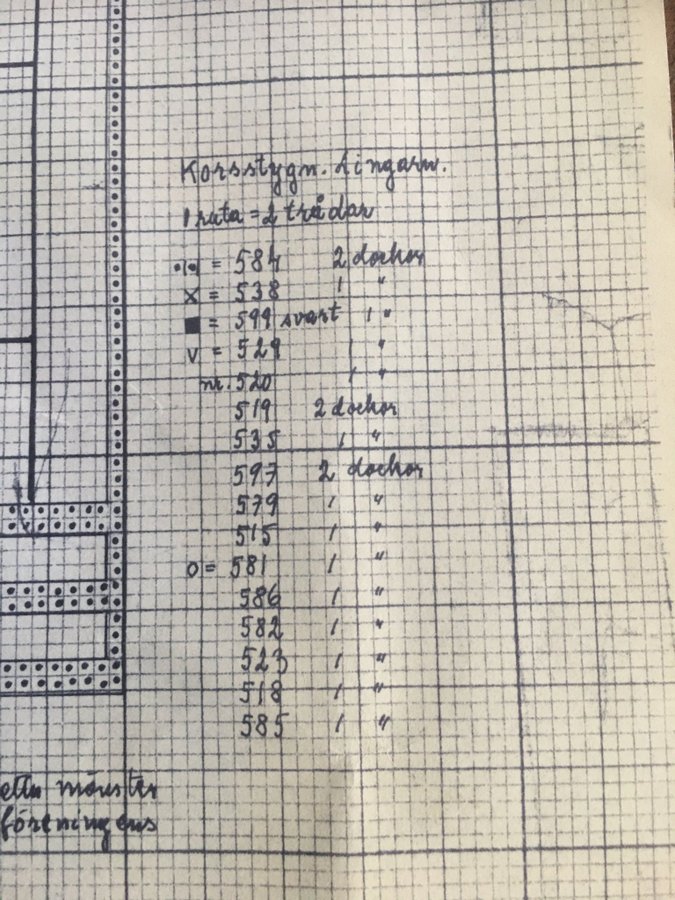 Korsstygn. Lingarn.
1 ruta = 2 trådar
= 584 2 dockor
x = 538 1 "
■ = 599 svart 1 "
v = 529 1 "
nr. 520 1 "
519 2 dockor
535 1 "
597 2 dockor
579 1 "
515 1 "
o = 581 1 "
586 1 "
582 1 "
523 1 "
518 1 "
585 1 "
etta mönster
föreningens